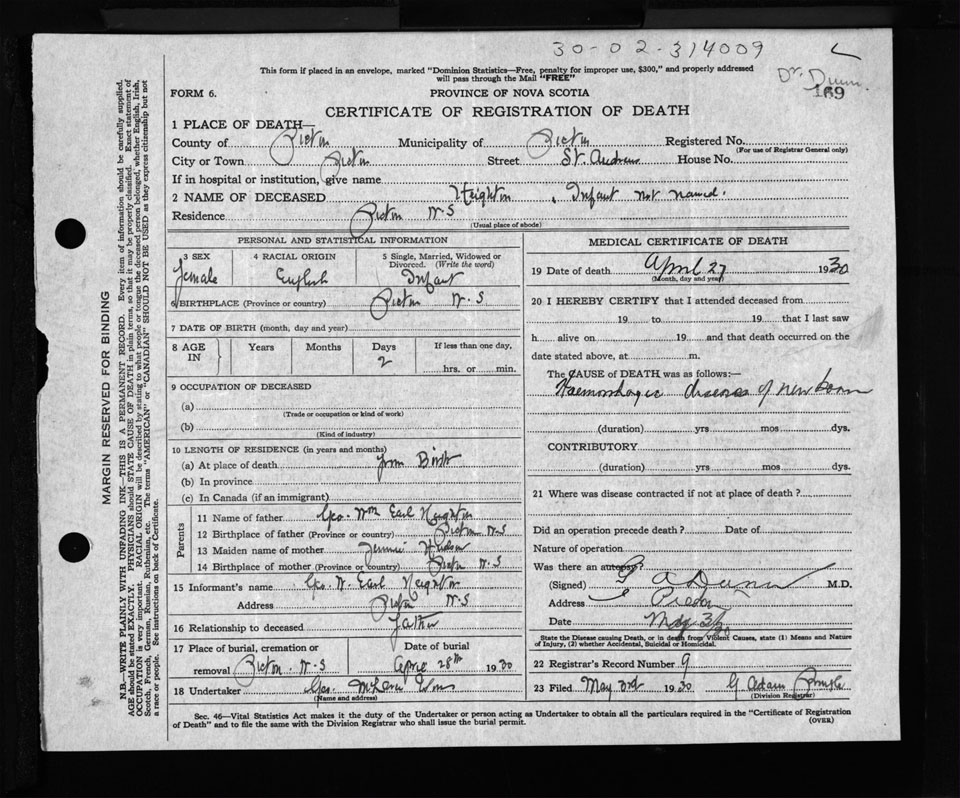 30-02-314009
Dr. Dunn.
This form if placed in an envelope, marked "Dominion Statistics—Free, penalty for improper use, $300," and properly addressed
will pass through the Mail "FREE"
169
FORM 6. PROVINCE OF NOVA SCOTIA
CERTIFICATE OF REGISTRATION OF DEATH
1 PLACE OF DEATH—
County of Pictou Municipality of Pictou Registered No.
(For use of Registrar General only)
City or Town Pictou Street St. Andrew House No.
If in hospital or institution, give name
2 NAME OF DECEASED Heighton, Infant not named.
Residence Pictou N.S
(Usual place of abode)
PERSONAL AND STATISTICAL INFORMATION
3 SEX 4 RACIAL ORIGIN 5 Single, Married, Widowed or
Divorced. (Write the word)
female English Infant
6 BIRTHPLACE (Province or country) Pictou N.S
7 DATE OF BIRTH (month, day and year)
8 AGE IN Years Months Days If less than one day,
2 hrs. or min.
9 OCCUPATION OF DECEASED
(a)
(Trade or occupation or kind of work)
(b)
(Kind of industry)
10 LENGTH OF RESIDENCE (in years and months)
(a) At place of death from Birth
(b) In province
(c) In Canada (if an immigrant)
Parents
11 Name of father Geo. Wm Earl Heighton
12 Birthplace of father (Province or country) Pictou N.S
13 Maiden name of mother Jennie Hudson
14 Birthplace of mother (Province or country) Pictou N.S
15 Informant's name Geo. W. Earl Heighton
Address Pictou N.S
16 Relationship to deceased father
17 Place of burial, cremation or Date of burial
removal Pictou. N.S April 28th 1930
18 Undertaker Geo.
(Name and address)
MEDICAL CERTIFICATE OF DEATH
19 Date of death April 27 1930
(Month, day and year)
20 I HEREBY CERTIFY that I attended deceased from
19 to 19 that I last saw
h alive on 19 and that death occurred on the
date stated above, at m.
The CAUSE of DEATH was as follows:—
Haemorrhagic disease of new born
(duration) yrs mos dys.
CONTRIBUTORY
(duration) yrs mos dys.
21 Where was disease contracted if not at place of death?
Did an operation precede death? Date of
Nature of operation
Was there an autopsy?
(Signed) G A Dunn M.D.
Address Pictou
Date May 3/30
State the Disease causing Death, or in death from Violent Causes, state (1) Means and Nature
of Injury, (2) whether Accidental, Suicidal or Homicidal.
22 Registrar's Record Number 9
23 Filed May 3rd 1930 G Adam
(Division Registrar)
Sec. 46—Vital Statistics Act makes it the duty of the Undertaker or person acting as Undertaker to obtain all the particulars required in the "Certificate of Registration
of Death" and to file the same with the Division Registrar who shall issue the burial permit. (OVER)
MARGIN RESERVED FOR BINDING
N.B.—WRITE PLAINLY WITH UNFADING INK—THIS IS A PERMANENT RECORD. Every item of information should be carefully supplied.
AGE should be stated EXACTLY. PHYSICIANS should STATE CAUSE OF DEATH in plain terms, so that it may be properly classified. Exact statement of
OCCUPATION is very important. RACIAL ORIGIN will be described by stating to what people or tongue the deceased person belonged, whether English, Irish,
Scotch, French, German, Russian, Ruthenian, etc. The terms "AMERICAN" or "CANADIAN" SHOULD NOT BE USED as they express citizenship but not
a race or people. See instructions on back of Certificate.